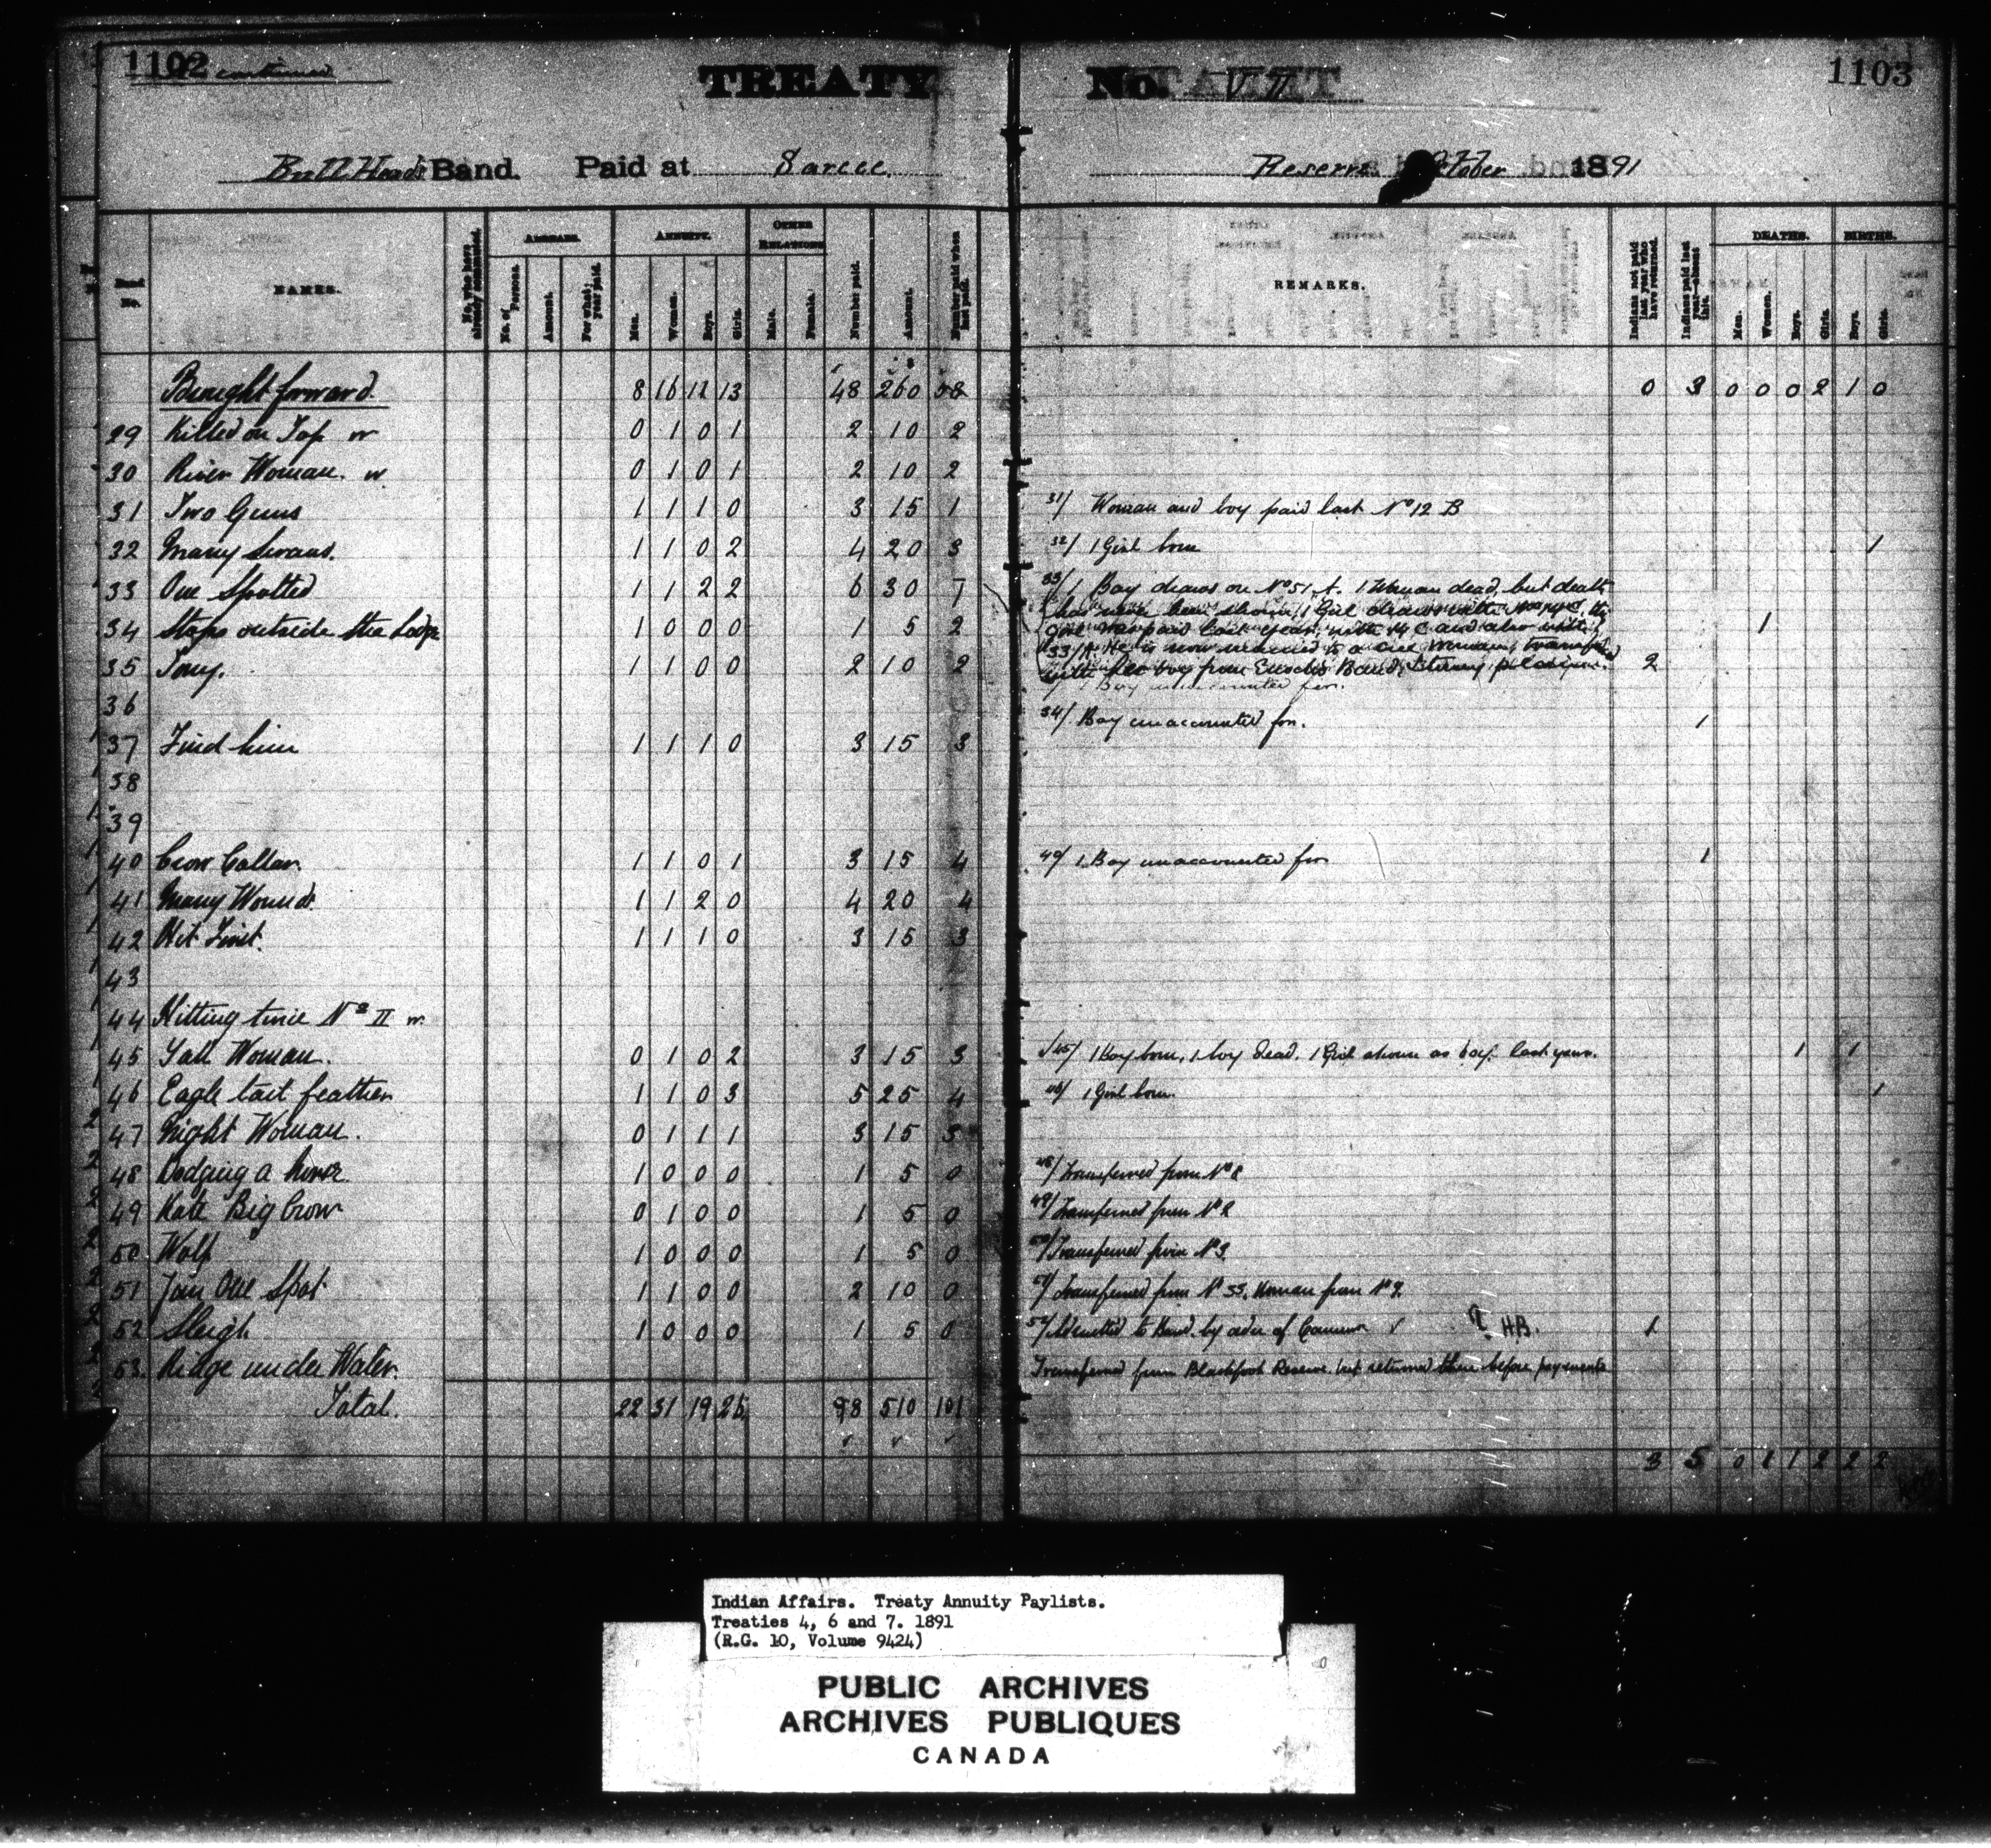 1102 continued
TREATY No. VII 1103
Bull Head's Band. Paid at Sarcee Reserve October 1891
Band No. NAMES. No. who have already commuted. ARREARS. No. of Persons. Amount. For what year paid. ANNUITY. Men. Women. Boys. Girls. OTHER RELATIONS Male. Female. Number paid. Amount. Number paid when last paid. REMARKS. Indians not paid last year who have returned. Indians paid last year—absent this. DEATHS. Men. Women. Boys. Girls. BIRTHS. Boys. Girls.
Brought forward. 8 16 11 13 48 260 58 0 3 0 0 0 2 1 0
29 Killed on Top w 0 1 0 1 2 10 2
30 River Woman. w. 0 1 0 1 2 10 2
31 Two Guns 1 1 1 0 3 15 1 31/ Woman and boy paid last No 12 B
32 Many Swans. 1 1 0 2 4 20 3 32/ 1 Girl born 1
33 One Spotted 1 1 2 2 6 30 7 33/ 1 Boy draws on No 51, A. 1 Woman dead, but death
has never been shown, 1 Girl draws with
34 Stops outside the Lodge 1 0 0 0 1 5 2 girl was paid last year with 14 C and also with 1
33/A. He is now married to a Cree Woman, transferred
35 Tony. 1 1 0 0 2 10 2 with her boy from Band, 2
1 Boy unaccounted for.
36
34/ Boy unaccounted for. 1
37 Find him 1 1 1 0 3 15 3
38
39
40 Crow Collar. 1 1 0 1 3 15 4 40/ 1 Boy unaccounted for 1
41 Many Wounds. 1 1 2 0 4 20 4
42 Hit First. 1 1 1 0 3 15 3
43
44 Hitting twice No II w.
45 Tall Woman. 0 1 0 2 3 15 3 45/ 1 Boy born, 1 boy dead. 1 Girl shown as boy last year. 1 1
46 Eagle tail feather 1 1 0 3 5 25 4 46/ 1 Girl born. 1
47 Night Woman. 0 1 1 1 3 15 3
48 Dodging a horse. 1 0 0 0 1 5 0 48/ Transferred from No 8
49 Kate Big Crow 0 1 0 0 1 5 0 49/ Transferred from No 2
50 Wolf 1 0 0 0 1 5 0 50/ Transferred from No 3
51 Jim One Spot 1 1 0 0 2 10 0 51/ Transferred from No 33, Woman from No 9.
52 Sleigh 1 0 0 0 1 5 0 52/ Admitted to Band by order of Commr H.B. 1
53. Ridge under Water. Transferred from Blackfoot Reserve but returned there before payments
Total. 22 31 19 26 98 510 101
3 5 0 1 1 2 2 2
Indian Affairs. Treaty Annuity Paylists.
Treaties 4, 6 and 7. 1891
(R.G. 10, Volume 9424)
PUBLIC ARCHIVES
ARCHIVES PUBLIQUES
CANADA